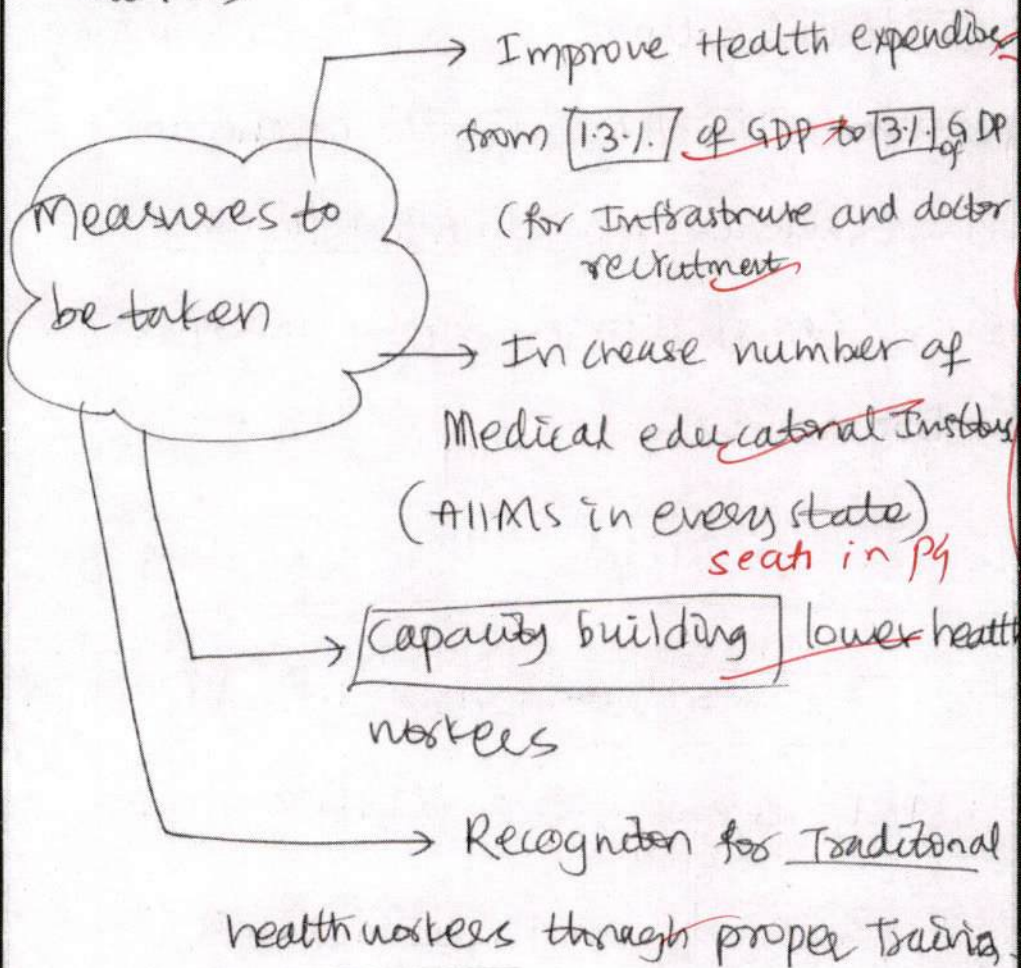 Improve Health expenditure
from 1.3% of GDP to 3% of GDP
(for Infrastrure and doctor
recrutment
Measures to
be taken
Increase number of
Medical educatonal Institus
(AIIMS in every state)
seats in PG
Capacity building lower health
workers
Recogniton for Traditonal
health workers through proper Training